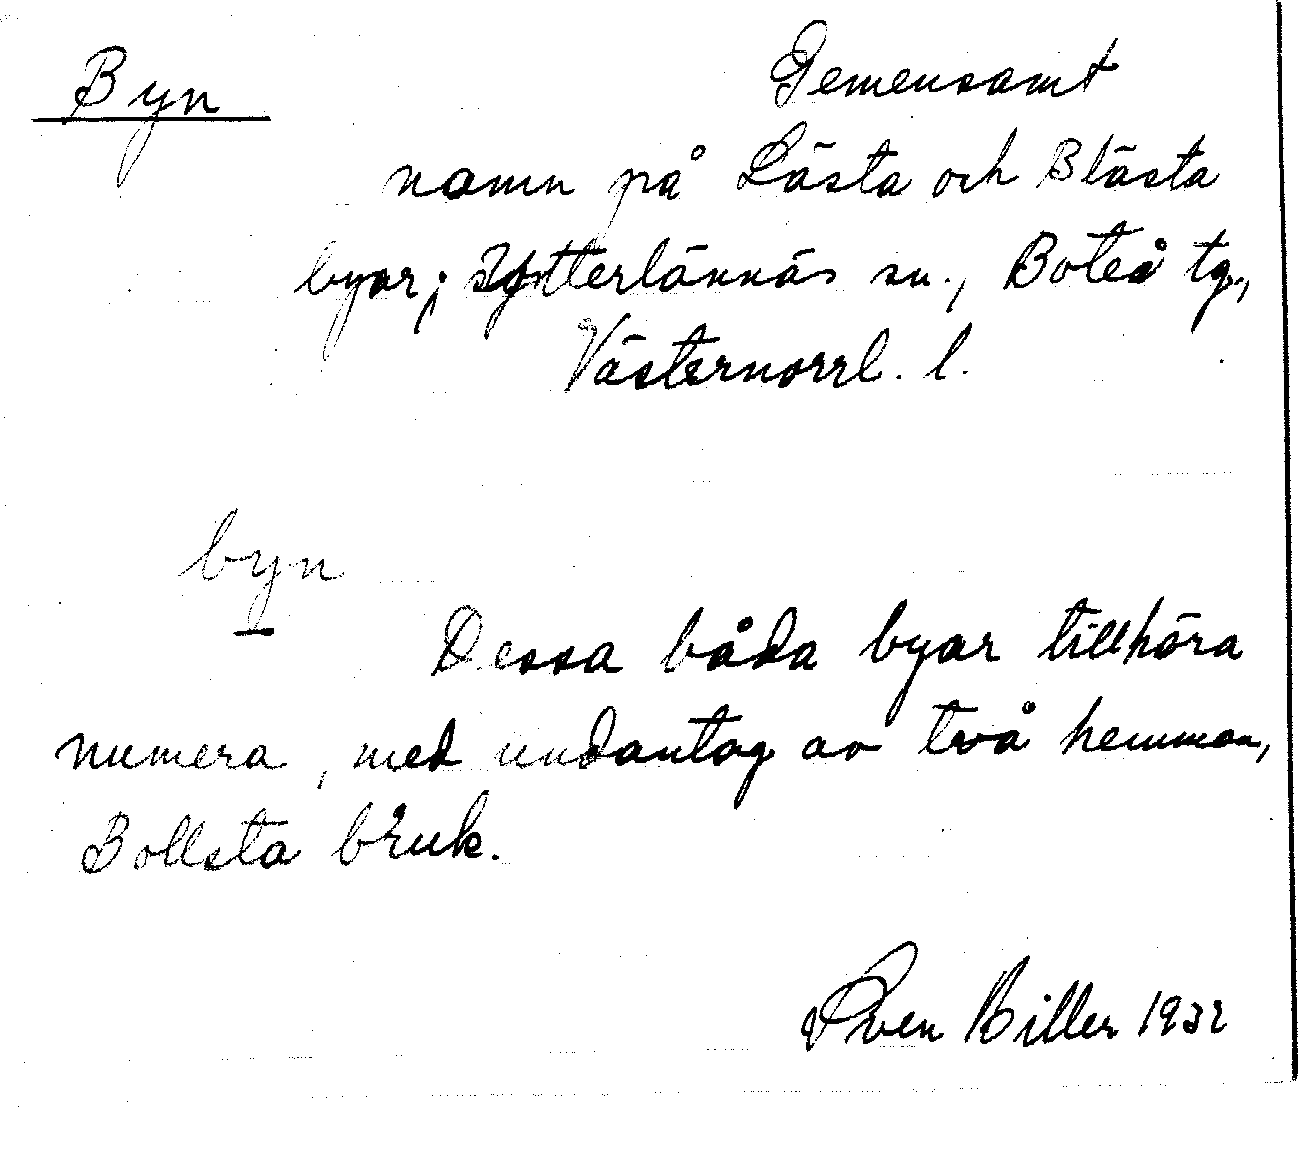 Byn
Gemensamt
namn på Lästa och Blästa
byar; Ytterlännäs sn., Boteå tg.,
Västernorrl. l.
byn
Dessa båda byar tillhöra
numera, med undantag av två hemman,
Bollsta bruk.
Sven Biller 1932